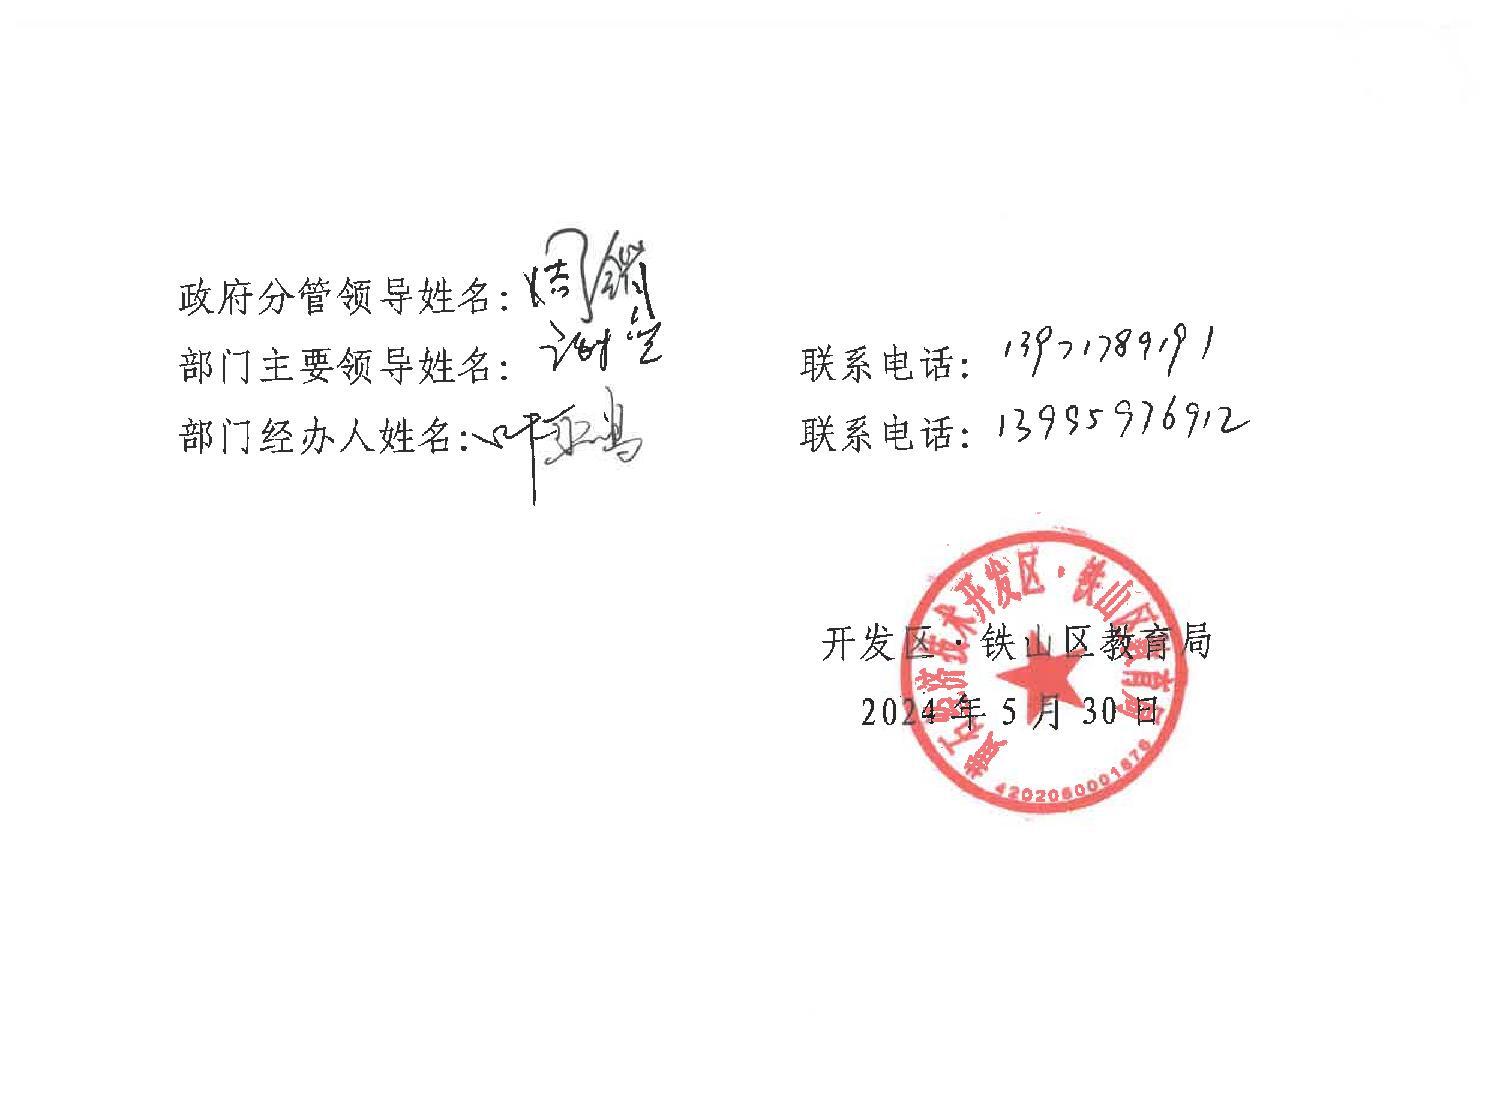 政府分管领导姓名：周
部门主要领导姓名：谢
联系电话：13971789191
部门经办人姓名：叶亚鸣
联系电话：13995976912
开发区·铁山区教育局
2024年5月30日
黄石经济技术开发区·铁山区教育局
4202060001676